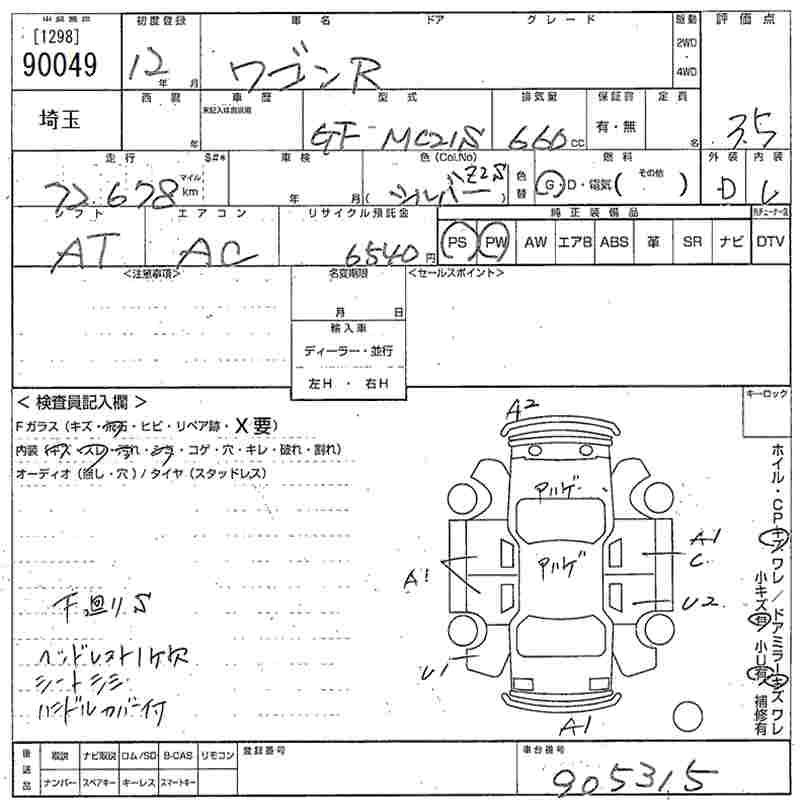 [1298]
90049
初度登録
12
年
月
車名
ドア
グレード
ワゴンR
駆動
2WD
・
4WD
評価点
3.5
埼玉
西暦
年
車歴
未記入は自家用
型式
GF-MC21S
排気量
660 cc
保証書
有・無
定員
名
走行
S#*
72.678
マイル
km
車検
年
月
色(Col,No)
(シルバー Z2S)
色替
燃料
G・D・電気( その他 )
外装
D
内装
シフト
AT
エアコン
AC
リサイクル預託金
6540円
純正装備品
PS
PW
AW
エアB
ABS
革
SR
ナビ
DTV
<注意事項>
名変期限
月 日
輸入車
ディーラー・並行
左H ・ 右H
<セールスポイント>
< 検査員記入欄 >
Fガラス(キズ・飛石・ヒビ・リペア跡・X要)
内装(キズ・スレ・汚れ・シミ・コゲ・穴・キレ・破れ・割れ)
オーディオ(無し・穴)/タイヤ(スタッドレス)
下廻りS
ヘッドレスト1ケ欠
シートシミ
ハンドルカバー付
キーロック
A2
アハゲ
アハゲ
A1
A1
C
U2
U1
A1
ホイル・CPキズワレ/ドアミラーキズワレ
小キズ有 小U有 補修有
後送品
取説
ナビ取説
ロム/SD
B-CAS
リモコン
ナンバー
スペアキー
キーレス
スマートキー
登録番号
車台番号
905315